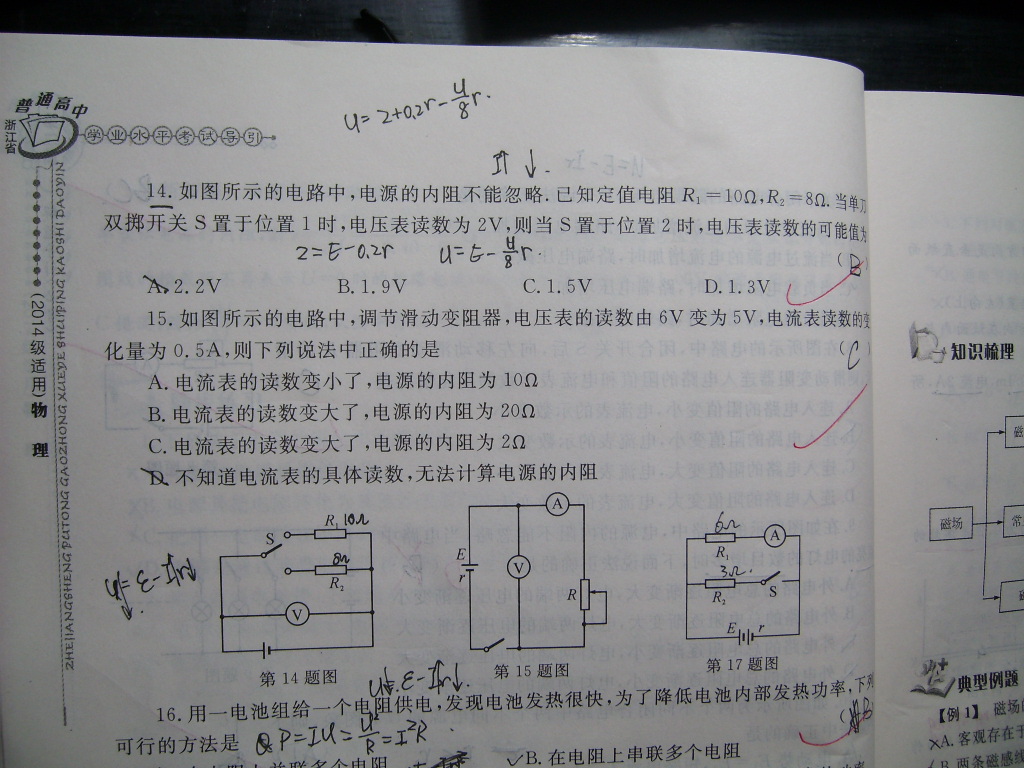 普通高中
浙江省
学业水平考试导引
ZHEJIANGSHENG PUTONG GAOZHONG XUEYE SHUIPING KAOSHI DAOYIN
(2014级适用)物 理
U=2+0.2r-U/8 r.
I↑ ↓.
14. 如图所示的电路中,电源的内阻不能忽略.已知定值电阻 R₁=10Ω,R₂=8Ω.当单刀
双掷开关 S 置于位置 1 时,电压表读数为 2V,则当 S 置于位置 2 时,电压表读数的可能值为
2=E-0.2r U=E-U/8 r. (B)
A. 2.2V B. 1.9V C. 1.5V D. 1.3V
15. 如图所示的电路中,调节滑动变阻器,电压表的读数由 6V 变为 5V,电流表读数的变
化量为 0.5A,则下列说法中正确的是 (C
A. 电流表的读数变小了,电源的内阻为 10Ω
B. 电流表的读数变大了,电源的内阻为 20Ω
C. 电流表的读数变大了,电源的内阻为 2Ω
D. 不知道电流表的具体读数,无法计算电源的内阻
S R₁ 10Ω
8Ω R₂
V
U=E-Ir
第 14 题图
A
E r V R
第 15 题图
6Ω R₁ A
3Ω R₂ S
E r
第 17 题图
U=E-Ir
16. 用一电池组给一个电阻供电,发现电池发热很快,为了降低电池内部发热功率,下列
可行的方法是 Q P=IU=U²/R=I²R (B
B. 在电阻上串联多个电阻
知识梳理
磁场
典型例题
【例 1】 磁场的
A. 客观存在于
B. 两条磁感线